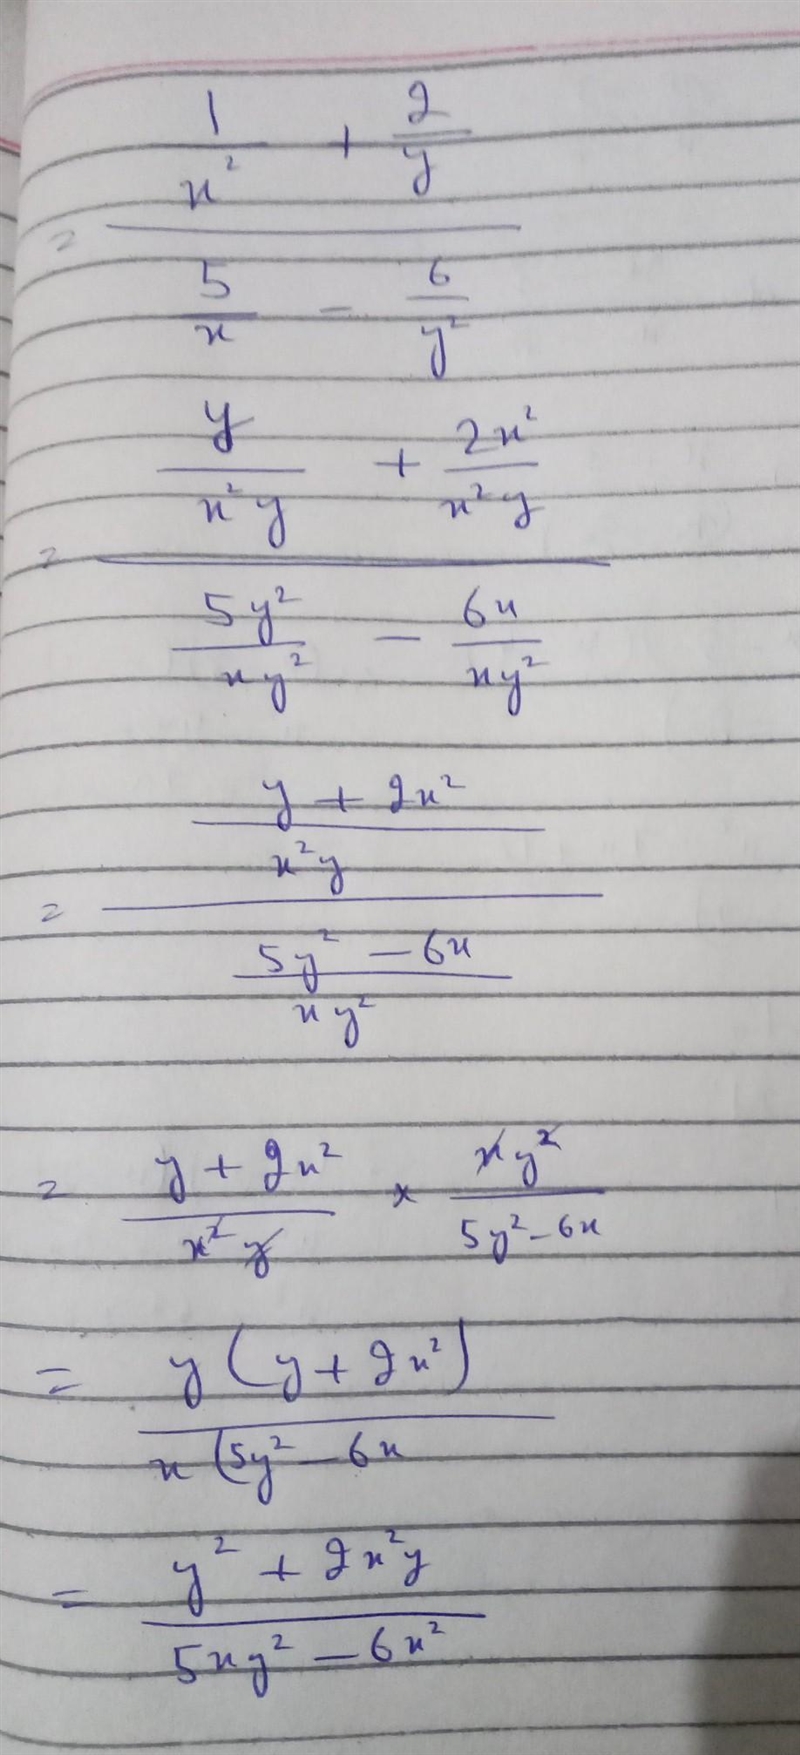 1/x² + 2/y
= ―――
5/x - 6/y²
y/x²y + 2x²/x²y
= ―――
5y²/xy² - 6x/xy²
y + 2x²/x²y
= ―――
5y² - 6x/xy²
= y + 2x²/x²y × xy²/5y² - 6x
= y(y + 2x²)/x(5y² - 6x
= y² + 2x²y/5xy² - 6x²